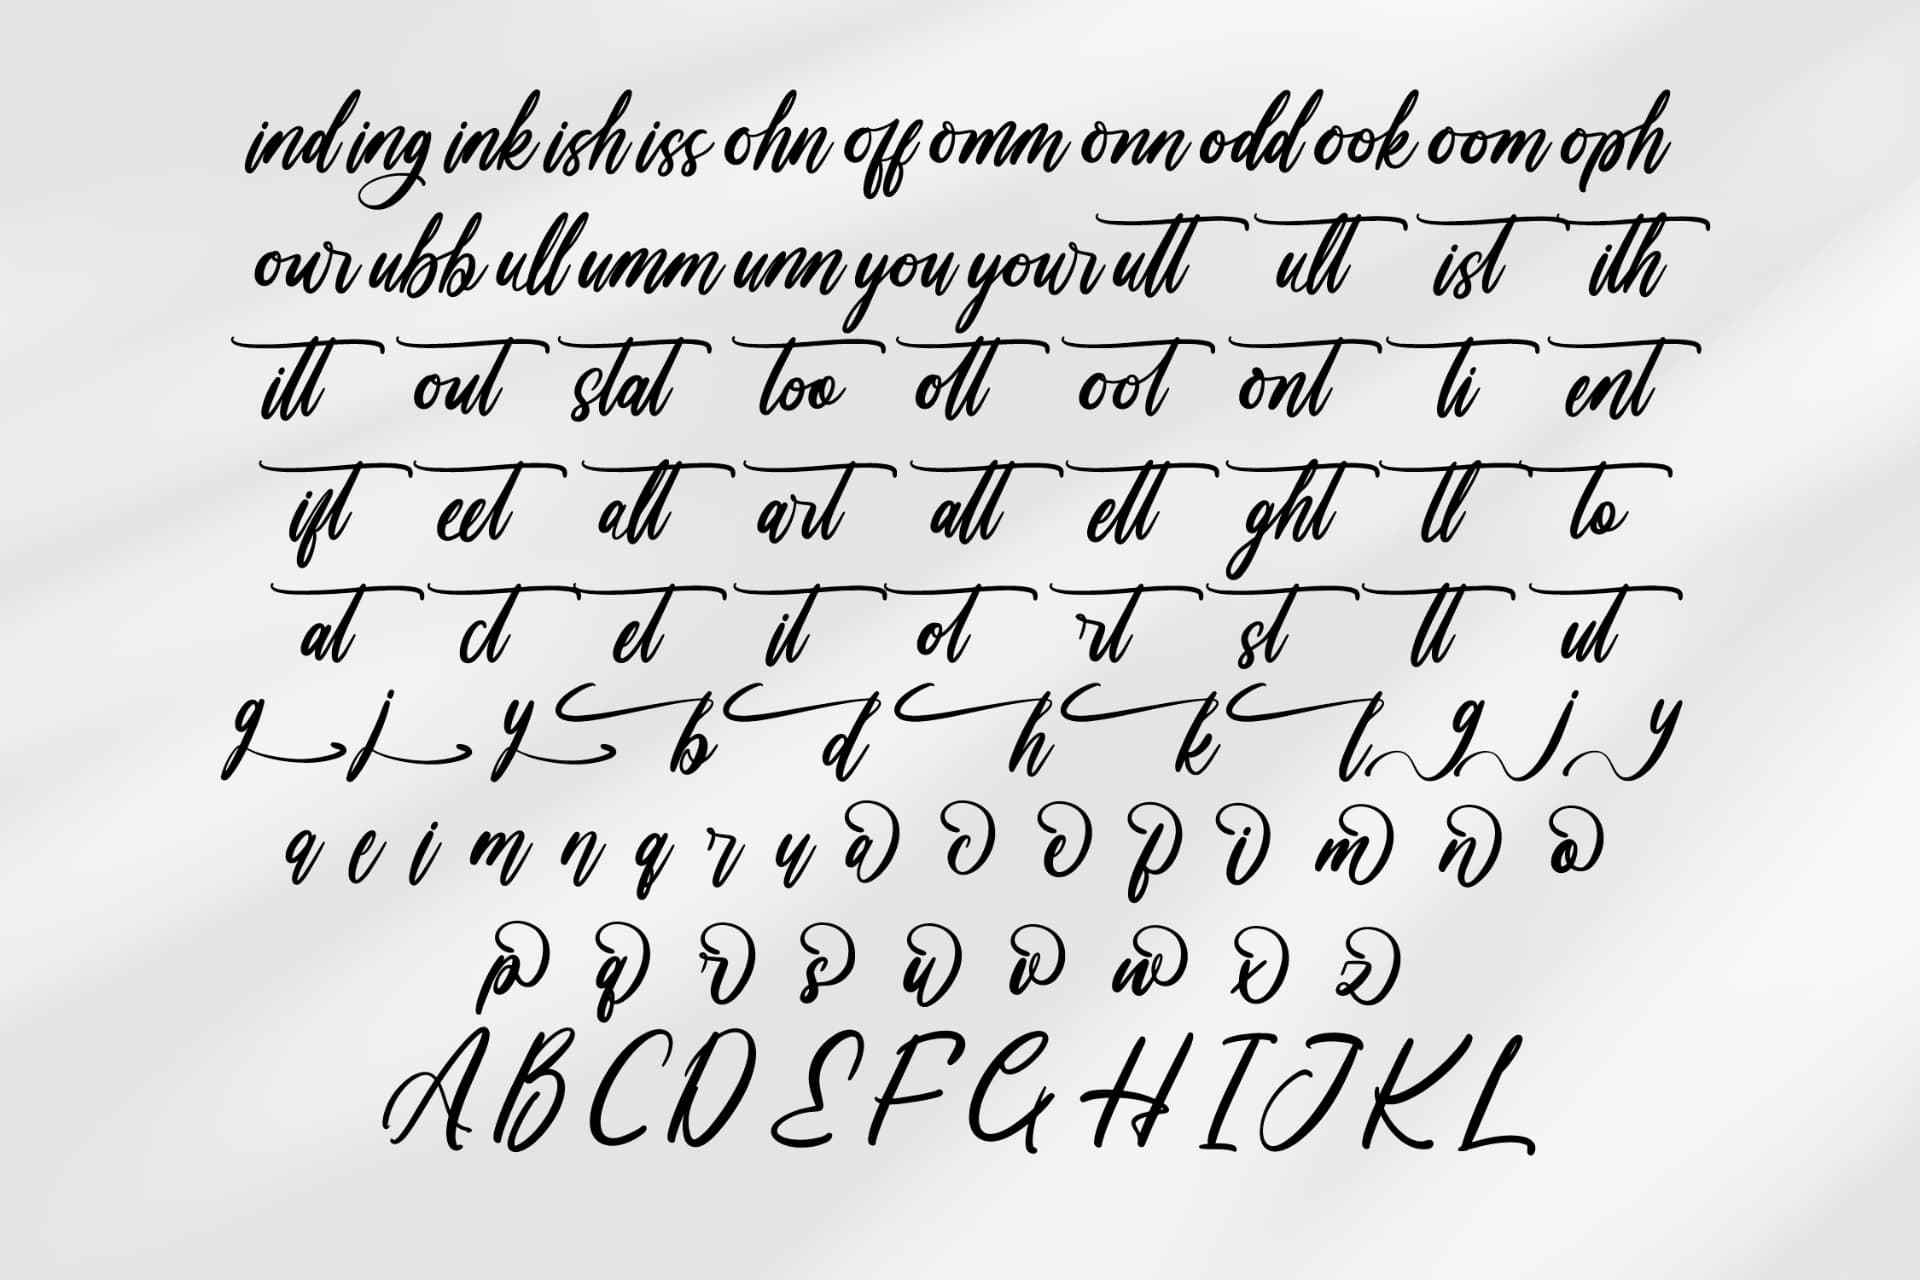 ind ing ink ish iss ohn off omm onn odd ook oom oph
our ubb ull umm unn you your utt ult ist ith
itt out stat too ott oot ont ti ent
ift eet att art att ett ght tt to
at ct et it ot rt st tt ut
g j y b d h k l g j y
a e i m n q r u a c e f i m n o
p q r s u v w x z
A B C D E F G H I J K L